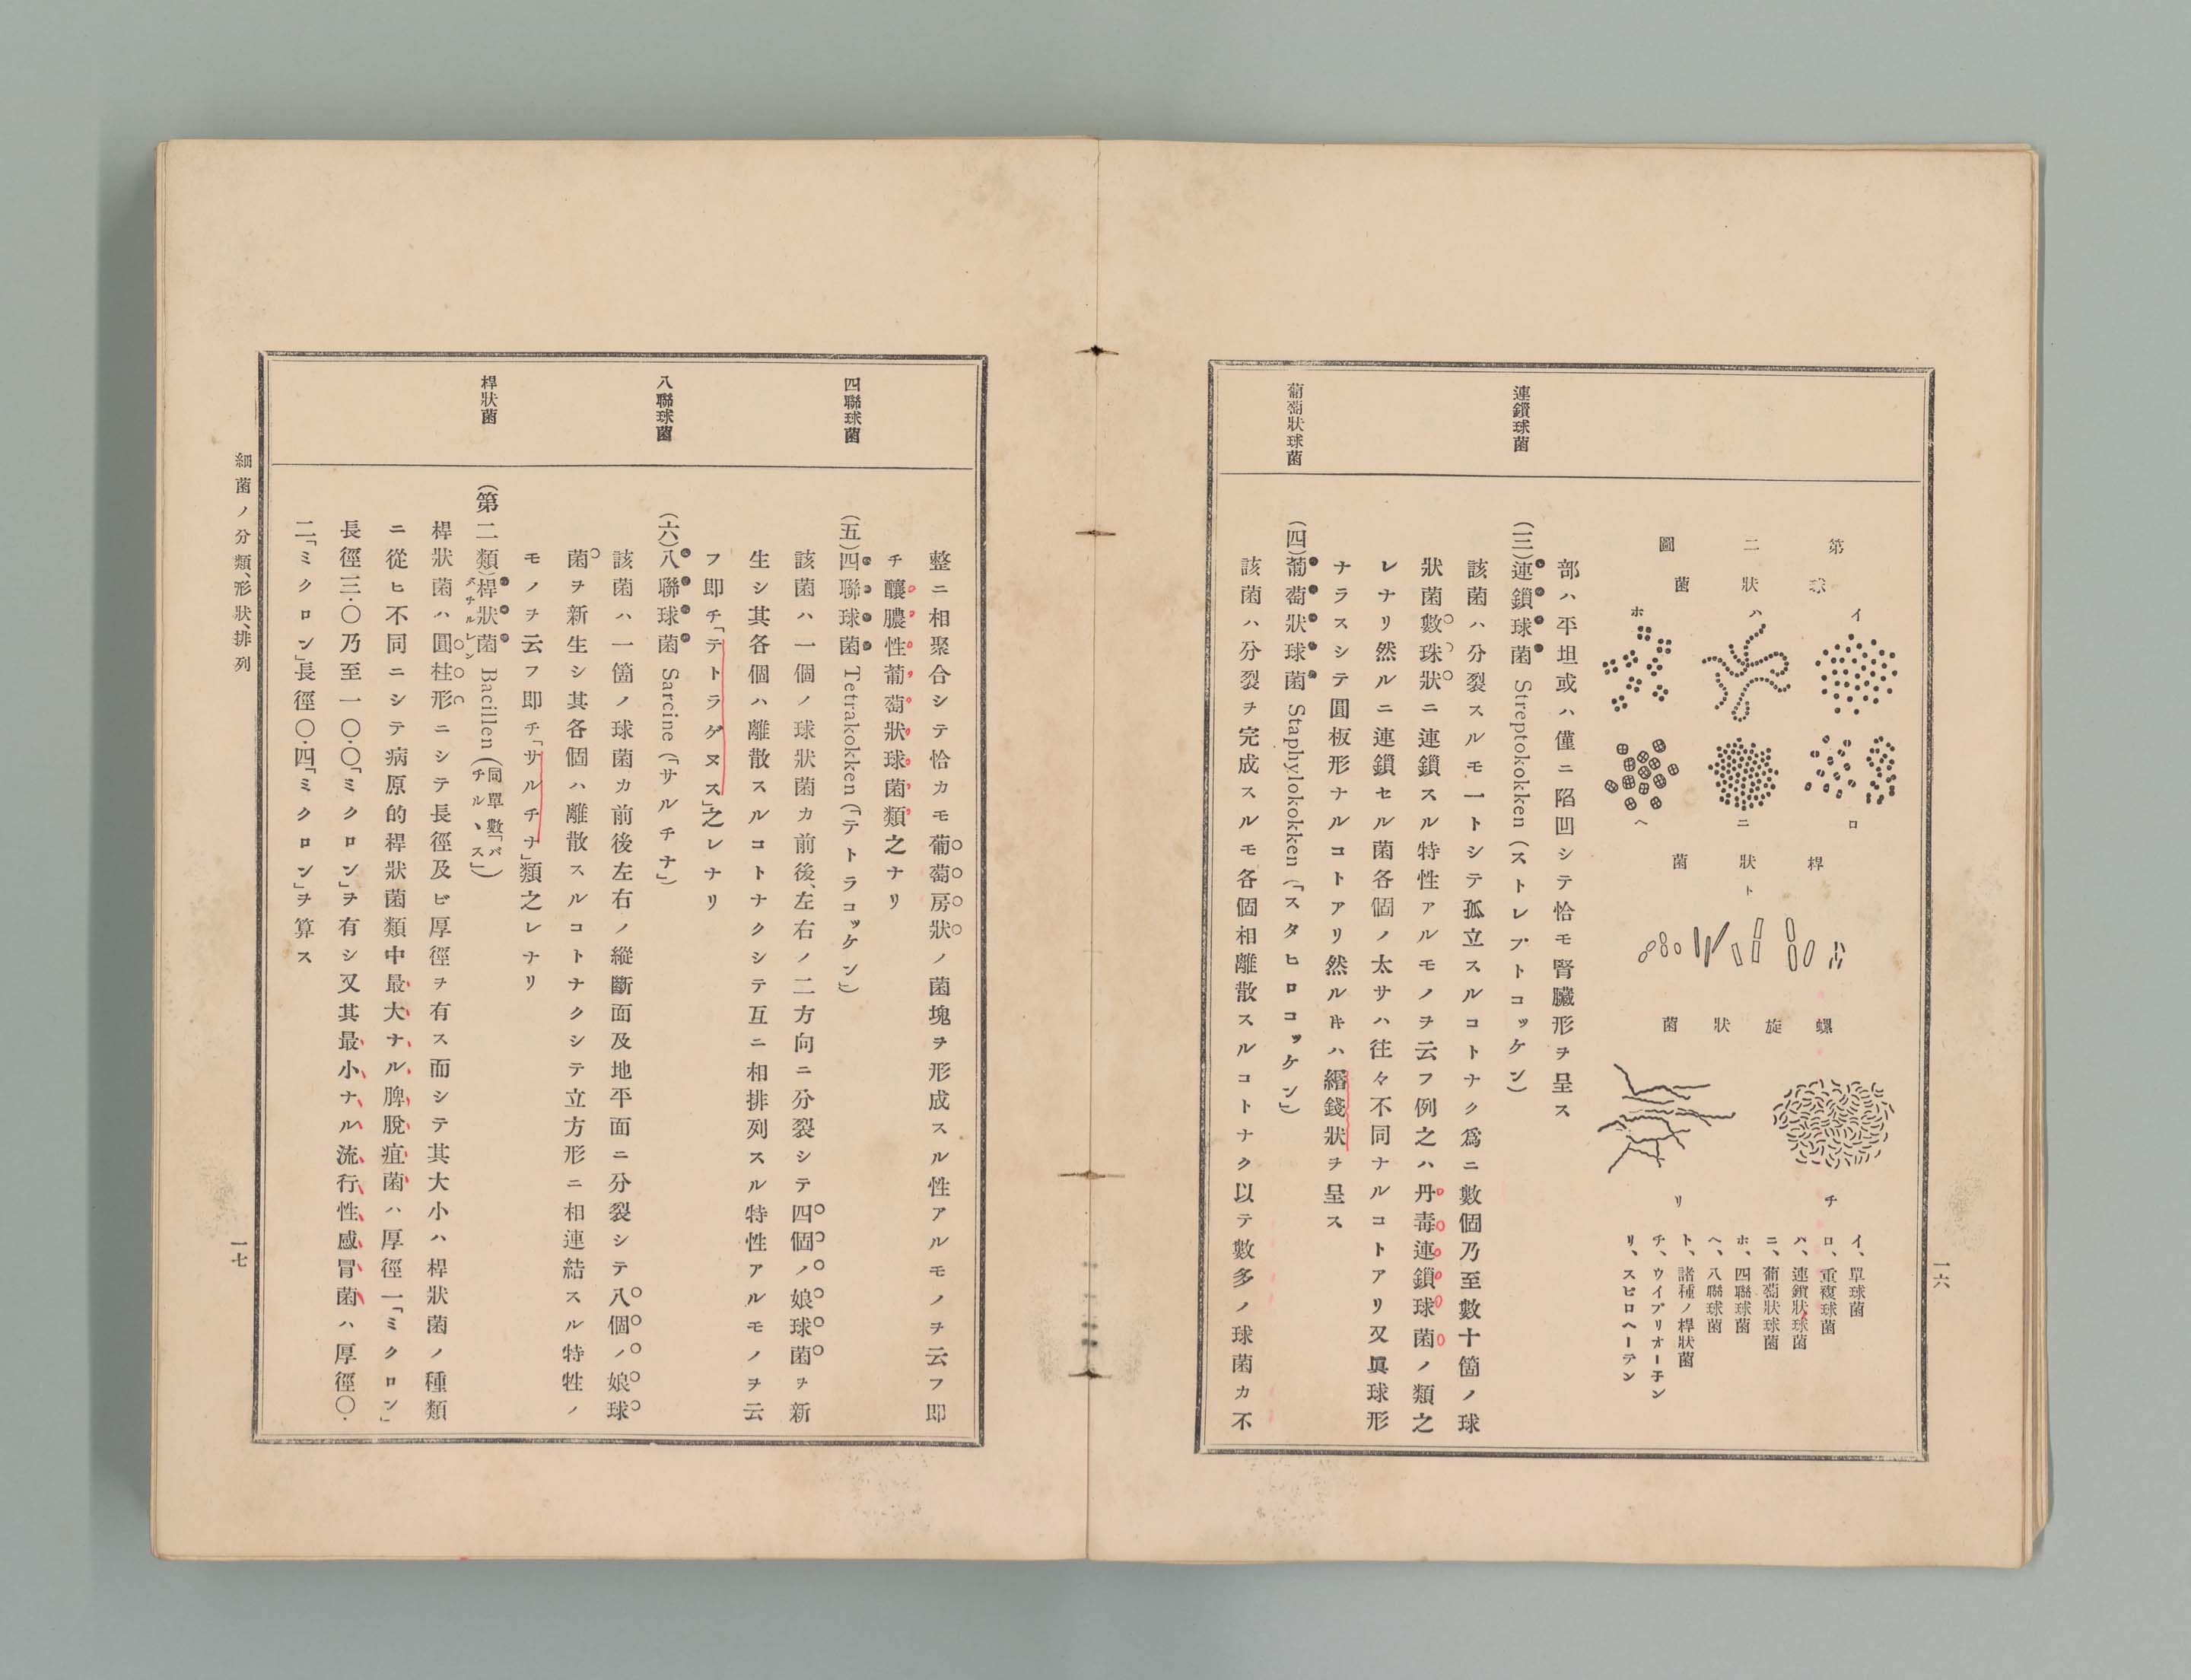 一六
連鎖球菌
葡萄狀球菌
第二圖
球狀菌
イ
ハ
ホ
ロ
ニ
ヘ
桿狀菌
ト
螺旋狀菌
チ
リ
イ、單球菌
ロ、重複球菌
ハ、連鎖狀球菌
ニ、葡萄狀球菌
ホ、四聯球菌
ヘ、八聯球菌
ト、諸種ノ桿狀菌
チ、ウイブリオーネン
リ、スピロヘーテン
部ハ平坦或ハ僅ニ陷凹シテ恰モ腎臟形ヲ呈ス
(三)連鎖球菌 Streptokokken (ストレプトコッケン)
該菌ハ分裂スルモ一トシテ孤立スルコトナク爲ニ數個乃至數十箇ノ球
狀菌數珠狀ニ連鎖スル特性アルモノヲ云フ例之ハ丹毒連鎖球菌ノ類之
レナリ然ルニ連鎖セル菌各個ノ太サハ往々不同ナルコトアリ又眞球形
ナラスシテ圓板形ナルコトアリ然ルㇳキハ緡錢狀ヲ呈ス
(四)葡萄狀球菌 Staphylokokken (「スタヒロコッケン」)
該菌ハ分裂ヲ完成スルモ各個相離散スルコトナク以テ數多ノ球菌カ不
四聯球菌
八聯球菌
桿狀菌
整ニ相聚合シテ恰カモ葡萄房狀ノ菌塊ヲ形成スル性アルモノヲ云フ即
チ釀膿性葡萄狀球菌類之ナリ
(五)四聯球菌 Tetrakokken (「テトラコッケン」)
該菌ハ一個ノ球狀菌カ前後、左右ノ二方向ニ分裂シテ四個ノ娘球菌ヲ新
生シ其各個ハ離散スルコトナクシテ互ニ相排列スル特性アルモノヲ云
フ即チ「テトラゲヌス」之レナリ
(六)八聯球菌 Sarcine (「サルチナ」)
該菌ハ一箇ノ球菌カ前後左右ノ縱斷面及地平面ニ分裂シテ八個ノ娘球
菌ヲ新生シ其各個ハ離散スルコトナクシテ立方形ニ相連結スル特性ノ
モノヲ云フ即チ「サルチナ」類之レナリ
(第二類)桿狀菌 Bacillen (同單數「バチルヽス」)
桿狀菌ハ圓柱形ニシテ長徑及ビ厚徑ヲ有ス而シテ其大小ハ桿狀菌ノ種類
ニ從ヒ不同ニシテ病原的桿狀菌類中最大ナル脾脫疽菌ハ厚徑一「ミクロン」
長徑三・〇乃至一〇・〇「ミクロン」ヲ有シ又其最小ナル流行性感冒菌ハ厚徑〇・
二「ミクロン」長徑〇・四「ミクロン」ヲ算ス
細菌ノ分類、形狀、排列
一七